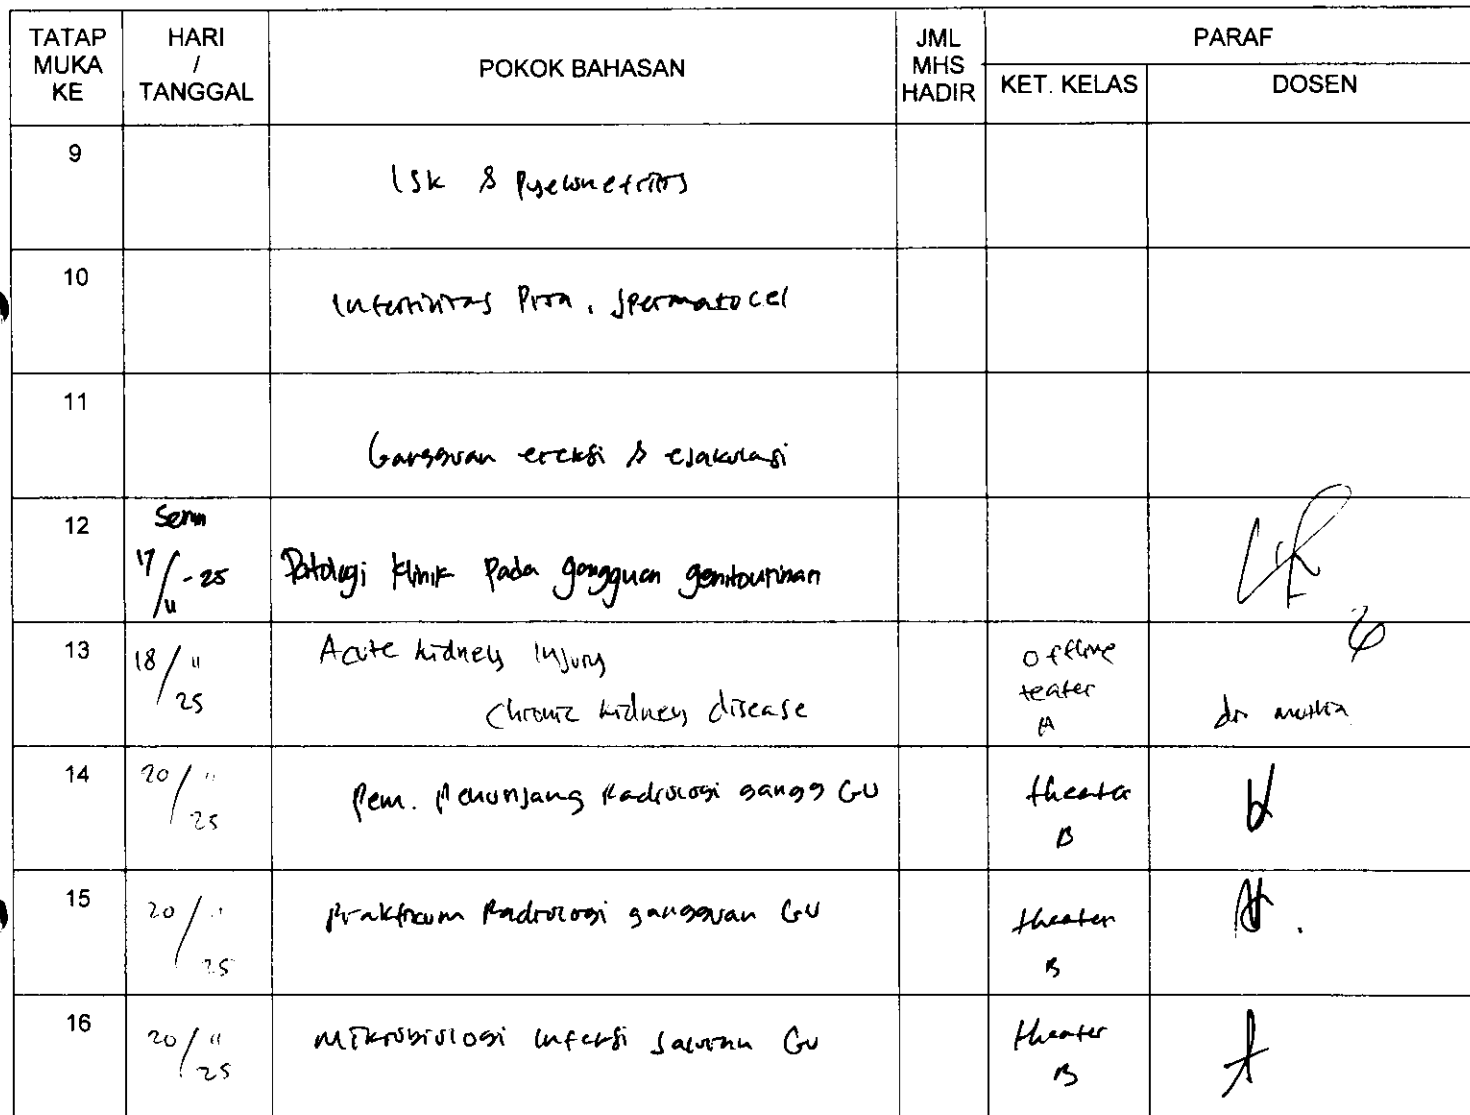 TATAP MUKA KE HARI / TANGGAL POKOK BAHASAN JML MHS HADIR PARAF
KET. KELAS DOSEN
9 ISK & Pyelonefritis
10 Infertilitas Pria, Spermatocel
11 Gangguan ereksi & ejakulasi
12 Senin 17/11-25 Patologi klinik pada gangguan genitourinari
13 18/11 25 Acute kidney injury
Chronic kidney disease
offline teater A
14 20/11 25 Pem. Penunjang Radiologi gangg GU theater B
15 20/11 25 Praktikum Radiologi gangguan GU theater B
16 20/11 25 Mikrobiologi infeksi saluran GU theater B